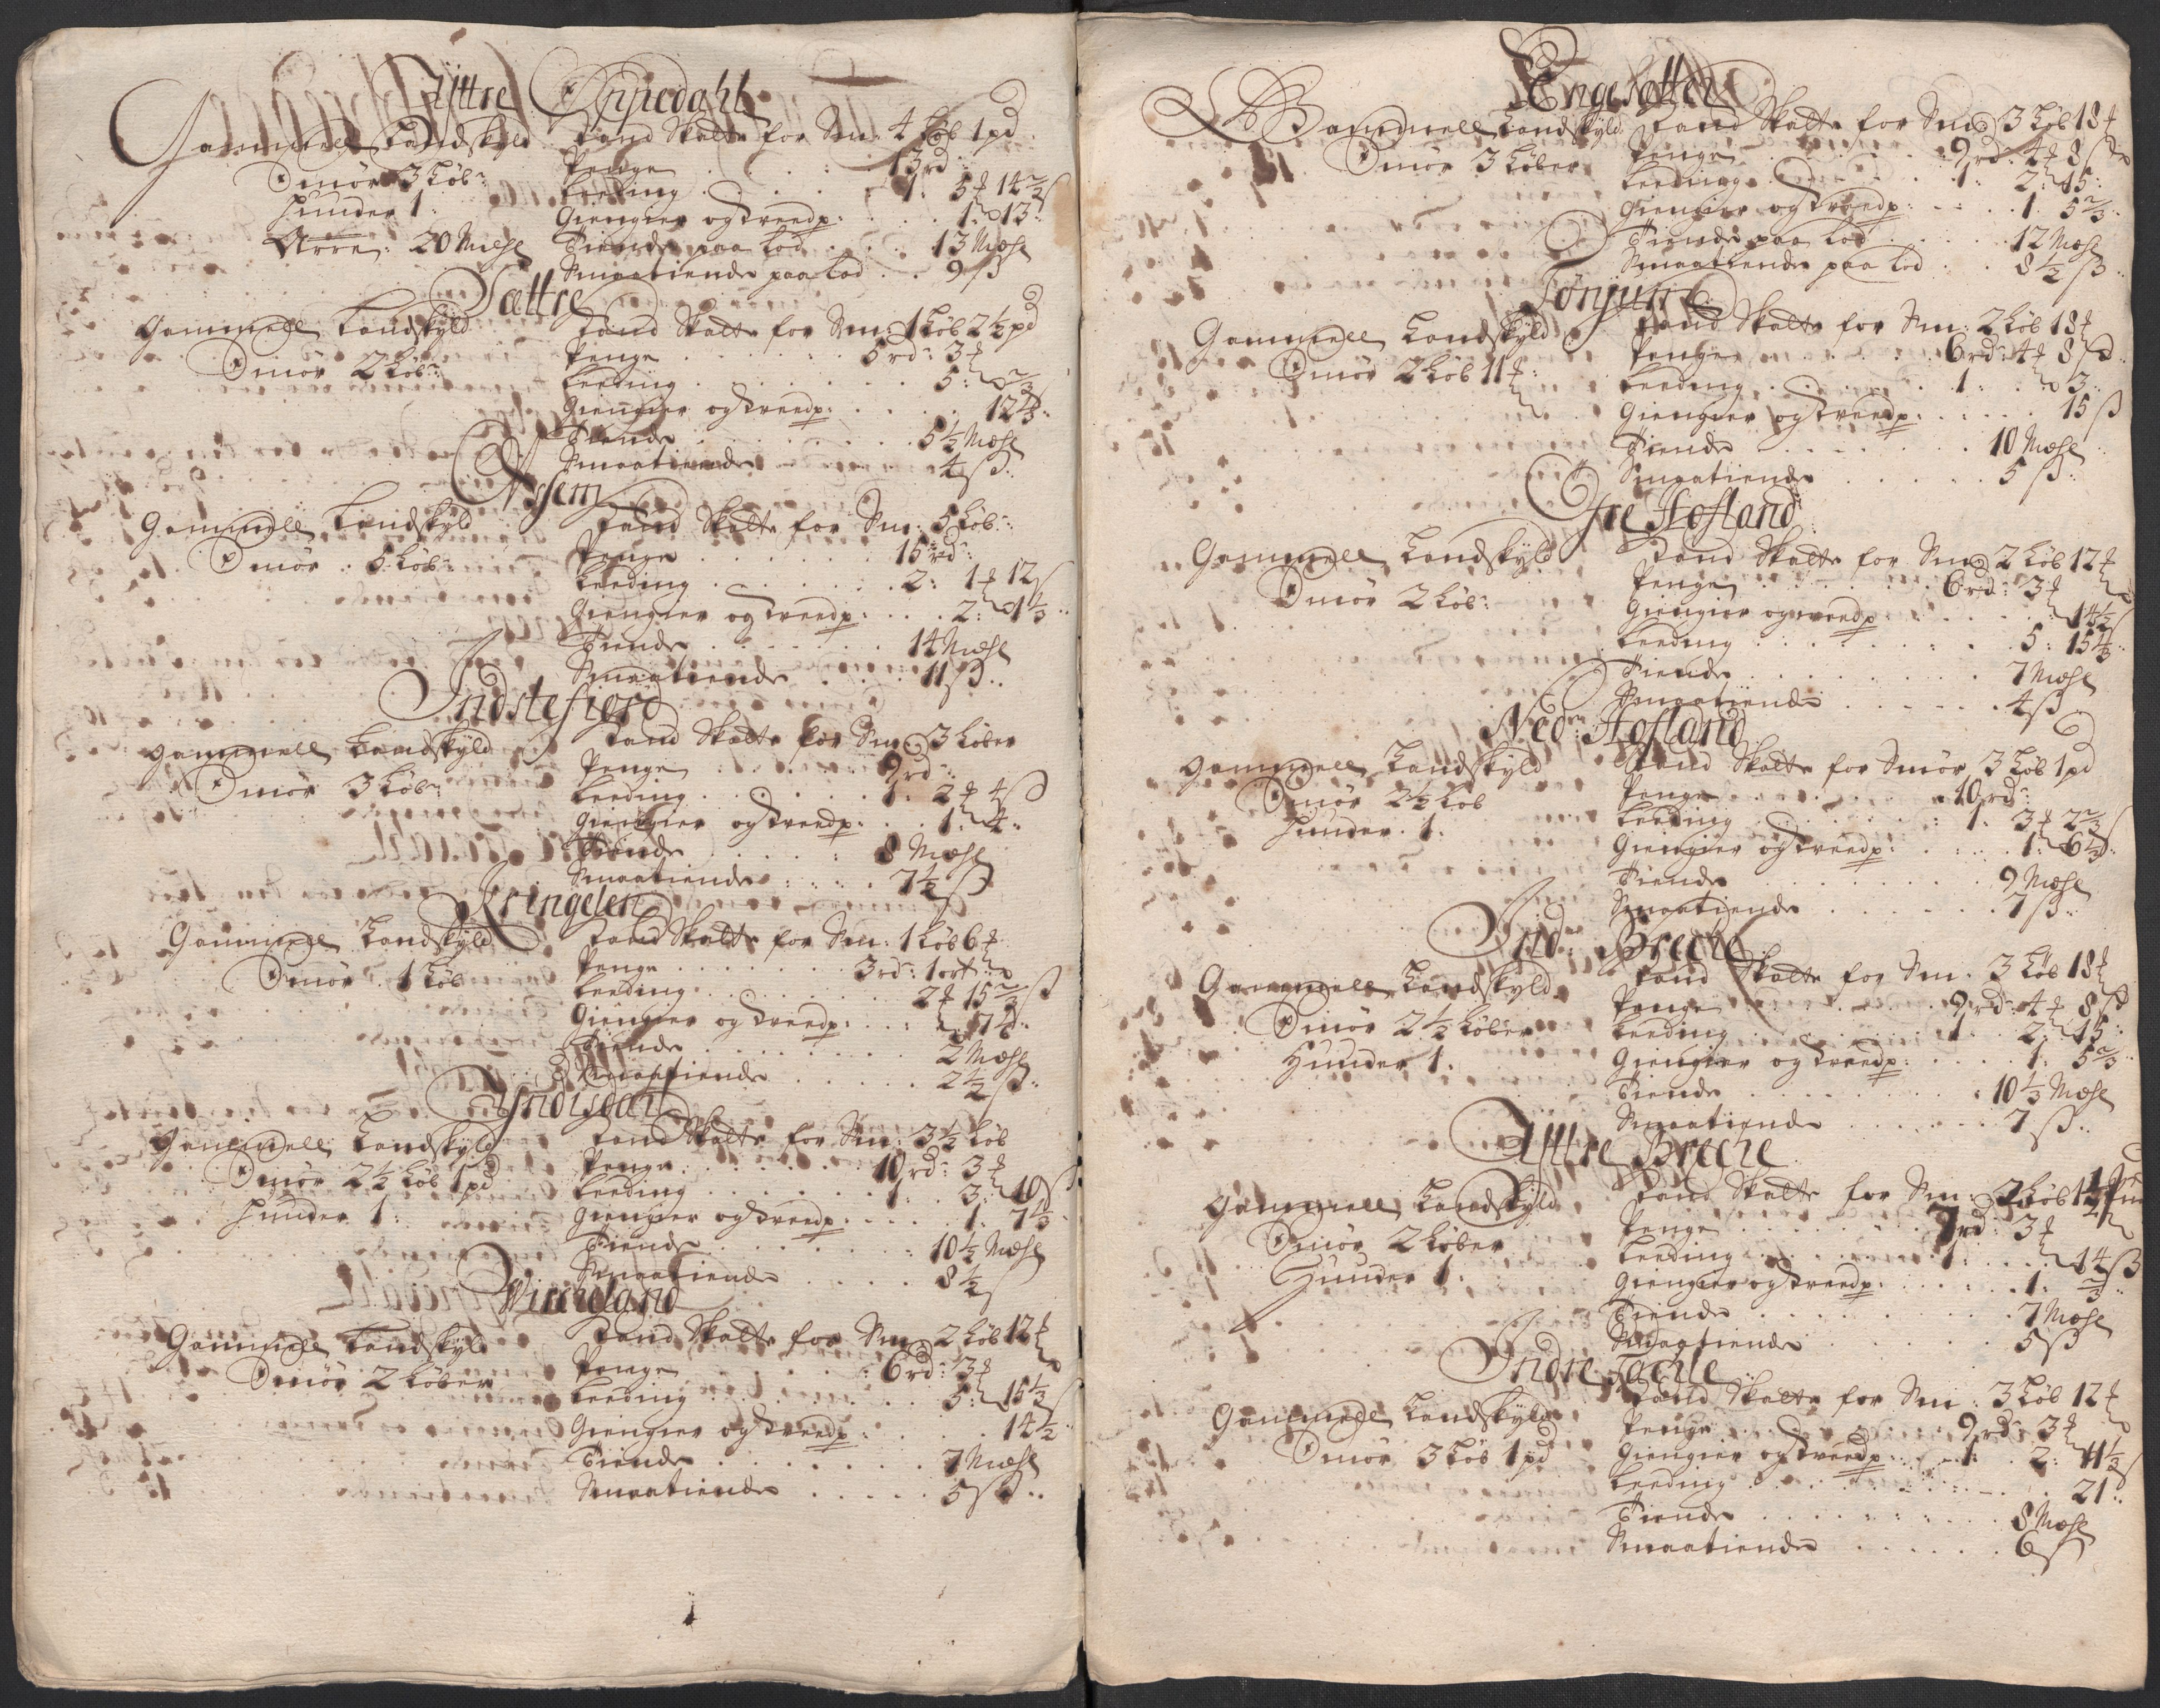 Yttre Oppedahl
Gammell Landskyld
Smör 3 Løb:
Huuder 1:
Korn: 20 Mæhl
Land Skatt for Sm: 4 Løb 1 pd
Penge . . . . 13 rd:
Leeding . . . 1: 5 ₰ 14⅔ ß
Giengier og dreedp: . . 1: 13:
Tiende paa Lod . . . 13 Mæhl
Smaatiende paa Lod . . 9 ß
Sættre
Gammell Landskyld
Smör 2 Løb:
Land Skatt for Sm: 1 Løb 2½ pd
Penge . . . . . 5 rd: 3 ₰
Leeding . . . . . 5: ⅔
Giengier og dreedp: . . . 12⅓:
Tiende . . . . . 5½ Mæhl
Smaatiende . . . . 4 ß:
Assem
Gammell Landskyld
Smör: 5 Løb:
Land Skatt for Sm: 5 Løb:
Penge . . . . . 15 rd:
Leeding . . . . . 2: 1 ₰ 12 ß
Giengier og dreedp: . . . 2: 1⅓
Tiende . . . . . 14 Mæhl
Smaatiende . . . . 11 ß:
Indstefiord
Gammell Landskyld
Smör 3 Løb:
Land Skatt for Sm: 3 Løber
Penge . . . . . 9 rd:
Leeding . . . . . 1: 2 ₰ 4 ß
Giengier og dreedp: . . 1: 4:
Tiende . . . . . 8 Mæhl
Smaatiende . . . . 7½ ß
Kringelen
Gammell Landskyld
Smör 1 Løb
Land Skatt for Sm: 1 Løb 6 ₰
Penge . . . . . 3 rd: 1 ort:
Leeding . . . . . 2 ₰ 15⅔ ß
Giengier og dreedp: . . . 7⅓:
Tiende . . . . . 2 Mæhl
Smaatiende . . . . . 2½ ß:
Yndisdahl
Gammell Landskyld
Smör 2½ Løb 1 pd
Huuder 1:
Land Skatt for Sm: 3½ Løb
Penge . . . . . 10 rd: 3 ₰
Leeding . . . . . 1: 3: 10 ß
Giengier og dreedp: . . . 1: 7⅓
Tiende . . . . . 10½ Mæhl
Smaatiende . . . . 8½ ß
Wircheland
Gammell Landskyld
Smör 2 Løber
Land Skatt for Sm: 2 Løb 12 ₰
Penge . . . . . 6 rd: 3 ₰
Leeding . . . . . 5: 15⅓ ß
Giengier og dreedp: . . . 14½
Tiende . . . . . 7 Mæhl
Smaatiende . . . . . 5 ß:
Engesetter
Gammell Landskyld
Smör 3 Løber
Land Skatt for Sm: 3 Løb 18 ₰
Penge . . . . . 9 rd: 4 ₰ 8 ß
Leeding . . . . . 1: 2: 15:
Giengier og dreedp: . . . 1: 5⅔
Tiende paa Lod . . . . 12 Mæhl
Smaatiende paa Lod . . . 8½ ß
Tönjum
Gammell Landskyld
Smör 2 Løb 11 ₰:
Land Skatt for Sm: 2 Løb 18 ₰
Penge . . . . . 6 rd: 4 ₰ 8 ß
Leeding . . . . . 1: 3:
Giengier og dreedp: . . . . 15 ß
Tiende . . . . . 10 Mæhl
Smaatiende . . . . . 5 ß:
Øfre Hofland
Gammell Landskyld
Smör 2 Løb:
Land Skatt for Sm: 2 Løb 12 ₰
Penge . . . . . 6 rd: 3 ₰
Giengier og dreedp: . . . 14½ ß
Leeding . . . . . 5: 15⅓
Tiende . . . . . 7 Mæhl
Smaatiende . . . . . 4 ß
Ned: Hofland
Gammell Landskyld
Smör 2½ Løb
Huuder. 1.
Land Skatt for Smör 3 Løb 1 pd
Penge . . . . . 10 rd:
Leeding . . . . . 1: 3 ₰ 2⅔
Giengier og dreedp: . . . 1: 6⅓ ß
Tiende . . . . . 9 Mæhl
Smaatiende . . . . . 7 ß:
Ind: Breche
Gammell Landskyld
Smör 2½ Løber
Huuder 1.
Land Skatt for Sm: 3 Løb 18 ₰
Penge . . . . . 9 rd: 4 ₰ 8 ß
Leeding . . . . . 1: 2: 15:
Giengier og dreedp: . . . 1: 5⅔
Tiende . . . . . 10⅓ Mæhl
Smaatiende . . . . . 7 ß:
Yttre Breche
Gammell Landskyld
Smör 2 Løber
Huuder 1.
Land Skatt for Sm: 2 Løb 1½ Pu
Penge . . . . . 7 rd: 3 ₰
Leeding . . . . . 1: 14 ß
Giengier og dreedp: . . . 1: ⅔
Tiende . . . . . 7 Mæhl
Smaatiende . . . . . 5 ß
Indre Tachle
Gammell Landskyld
Smör 3 Løb 1 pd
Land Skatt for Sm: 3 Løb 12 ₰
Penge . . . . . 9 rd: 3 ₰
Giengier og dreedp: . . 1: 2: 11⅓ ß
Leeding . . . . . 21:
Tiende . . . . . 8 Mæhl
Smaatiende . . . . . 6 ß